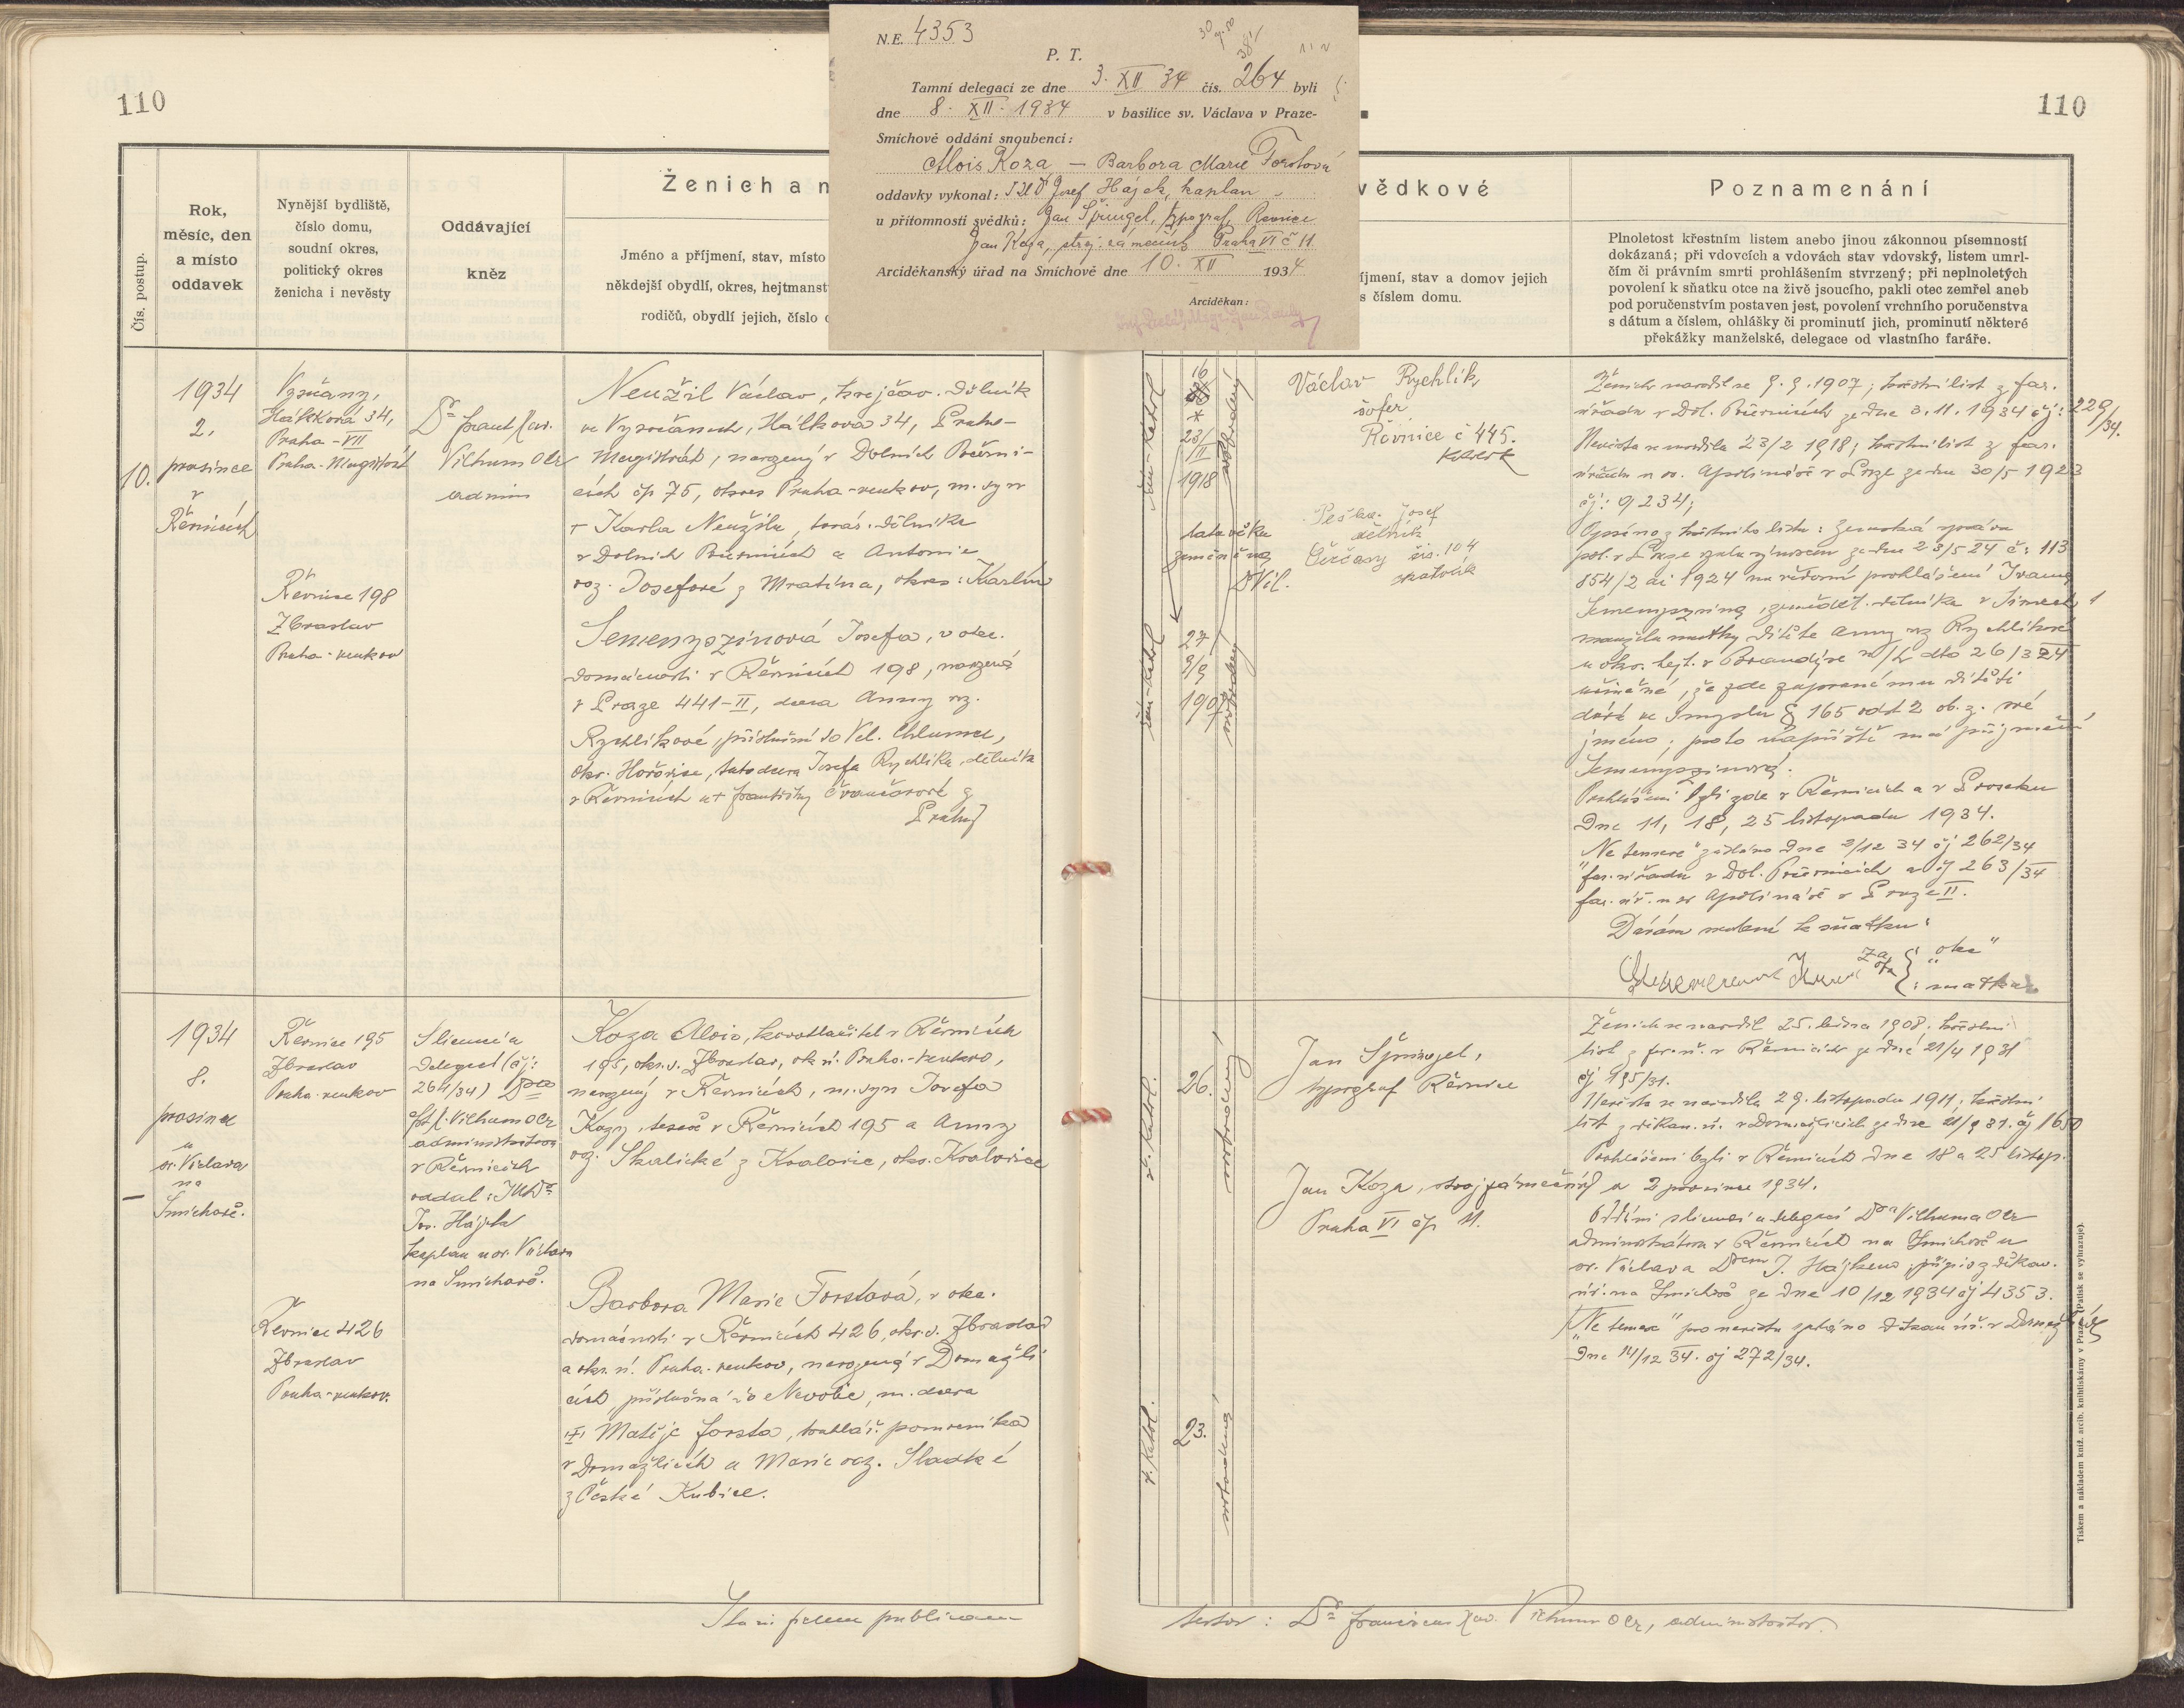 110
N.E. 4353
P. T.
Tamní delegací ze dne 3. XII 34 čís. 264 byli
dne 8. XII. 1934 v basilice sv. Václava v Praze-
Smíchově oddáni snoubenci:
Alois Koza — Barbora Marie Forstová
oddavky vykonal: JUDr Josef Hájek, kaplan
u přítomnosti svědků: Jan Špringel, typograf, Řevnice
Jan Koza, stroj. zámečník Praha VI č 11.
Arciděkanský úřad na Smíchově dne 10. XII 1934
Arciděkan:
110
Čís. postup.
Rok,
měsíc, den
a místo
oddavek
Nynější bydliště,
číslo domu,
soudní okres,
politický okres
ženicha i nevěsty
Oddávající
kněz
Ženich a n
Jméno a příjmení, stav, místo
někdejší obydlí, okres, hejtmanst
rodičů, obydlí jejich, číslo
vědkové
íjmení, stav a domov jejich
s číslem domu.
Poznamenání
Plnoletost křestním listem anebo jinou zákonnou písemností
dokázaná; při vdovcích a vdovách stav vdovský, listem umrl-
čím či právním smrti prohlášením stvrzený; při neplnoletých
povolení k sňatku otce na živě jsoucího, pakli otec zemřel aneb
pod poručenstvím postaven jest, povolení vrchního poručenstva
s dátum a číslem, ohlášky či prominutí jich, prominutí některé
překážky manželské, delegace od vlastního faráře.
10.
1934
2.
prosince
v
Řevnicích
Vysočany,
Hálkova 34,
Praha-VII
Praha-Magistrát
Řevnice 198
Zbraslav
Praha-venkov
Dr Frant. Xav.
Vilhum OCr
admin
Neužil Václav, krejčov. dělník
ve Vysočanech, Hálkova 34, Praha-
Magistrát, narozený v Dolních Počerni-
cích čp 75, okres Praha-venkov, m. syn
+ Karla Neužila, továr. dělníka
v Dolních Počernicích a Antonie
roz. Josefové z Mratína, okres: Karlín
Semenyszinová Josefa, v otec.
domácnosti v Řevnicích 198, narozená
v Praze 441-II, dcera Anny roz.
Rychlíkové, příslušné do Vel. Chlumce,
okr. Hořovice, tato dcera Josefa Rychlíka, dělníka
v Řevnicích a + Františky
z
Prahy
řím-katol
16
*
23/
II
1918
svobodný
data věku
zaměněna
DrVil.
řím-katol
27
9/9
1907
Václav Rychlík
šofer
Řevnice č 445.
Peška Josef
dělník
čis. 104
svědek
Ženich narodil se 9.9.1907; křestní list z far.
úřadu v Dol. Počernicích ze dne 3.11.1934 čj: 229/34.
Nevěsta se narodila 23/2 1918; křestní list z far.
úřadu u sv. Apolináře v Praze ze dne 30/5 1923
čj: 9234;
Opsáno z křestního listu: Zemská správa
pol. v Praze vydala výnosem ze dne 23/5 24 č: 113
854/2 ai 1924 na vědomí prohlášení Ivana
Semenyszina, zeměděl. dělníka v
manžela matky dítěte Anny roz Rychlíkové
u okr. hejt. v Brandýse n/L dto 26/3 24
učiněné, že zde zapsanému dítěti
dává ve smyslu § 165 odst 2 ob. z. své
jméno; proto napříště má příjmení
Semenyszinová.
Prohlášeni byli zde v Řevnicích a v Proseku
Dne 11, 18, 25 listopadu 1934.
"Ne temere" zasláno dne 3/12 34 čj 262/34
far. úřadu v Dol. Počernicích a čj 263/34
far. úř. u sv Apolináře v Praze II.
Dávám svolení k sňatku:
za { otce
: matka
1934
8.
prosince
u
sv. Václava
na
Smíchově.
Řevnice 195
Zbraslav
Praha-venkov
Řevnice 426
Zbraslav
Praha-venkov.
S licencí a
delegací (čj:
264/34) Dra
Fr. X. Vilhum OCr
administrátora
v Řevnicích
oddal: JUDr
Jos. Hájek
kaplan u sv. Václava
na Smíchově.
Koza Alois, kovotlačitel v Řevnicích
195, okr. s. Zbraslav, ok ú. Praha-venkov,
narozený v Řevnicích, m. syn Josefa
Kozy, tesaře v Řevnicích 195 a Anny
roz. Skalické z Kralovic, okr. Kralovice
Barbora Marie Forstová, v otec.
domácnosti v Řevnicích 426, okr. s. Zbraslav
a okr. ú. Praha-venkov, narozená v Domažli-
cích, příslušná do Nevolic, m. dcera
+ Matěje Forsta, truhlář. pomocníka
v Domažlicích a Marie roz. Sladké
z České Kubice.
ř. katol.
26.
svobodný
ř. katol.
23.
svobodná
Jan Špringel,
typograf Řevnice
Jan Koza, stroj. zámečník
Praha VI čp 11.
Ženich se narodil 25. ledna 1908, křestní
list z far. ú. v Řevnicích ze dne 21/4 1931
čj 195/31.
Nevěsta se narodila 29. listopadu 1911, křestní
list z děkan. ú. v Domažlicích ze dne 21/9 31. čj 1650
Prohlášeni byli v Řevnicích dne 18 a 25 listop.
a 2 prosince 1934.
Oddáni s licencí a delegací Dra Vilhuma OCr
administrátora v Řevnicích na Smíchově u
sv. Václava Drem J. Hájkem, přípis z děkan.
úř. na Smíchově ze dne 10/12 1934 čj 4353.
"Ne temere" pro nevěstu zasláno děkan. úř. v Domažlicích
Dne 14/12 34. čj 272/34.
Sta in fidem publicam
testor: Dr Franciscus Xav. Vilhum OCr, administrator.
Tiskem a nákladem kníž. arcib. knihtiskárny v Praze. (Patisk se vyhrazuje).